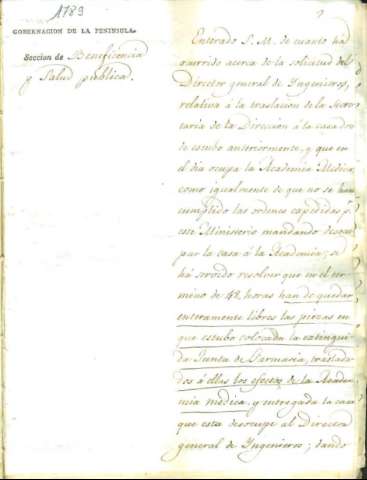 1789
GOBERNACION DE LA PENINSULA.
Seccion de Beneficencia
y Salud publica.
Enterado S. M. de cuanto ha
ocurrido acerca de la solicitud del
Director general de Ingenieros,
relativa á la traslacion de la Secre
taría de la Direccion á la casa don
de estubo anteriormente, y que en
el dia ocupa la Academia Medica,
como igualmente de que no se han
cumplido las ordenes expedidas pr.
este Ministerio mandando desocu
par la casa á la Academia; se
há servido resolver que en el ter
mino de 48 horas han de quedar
enteramente libres las piezas en
que estubo colocada la extingui
da Junta de Farmacia, traslada
dos á ellas los efectos de la Acade
mia medica, y entregada la casa
que esta desocupe al Director
general de Ingenieros; dando